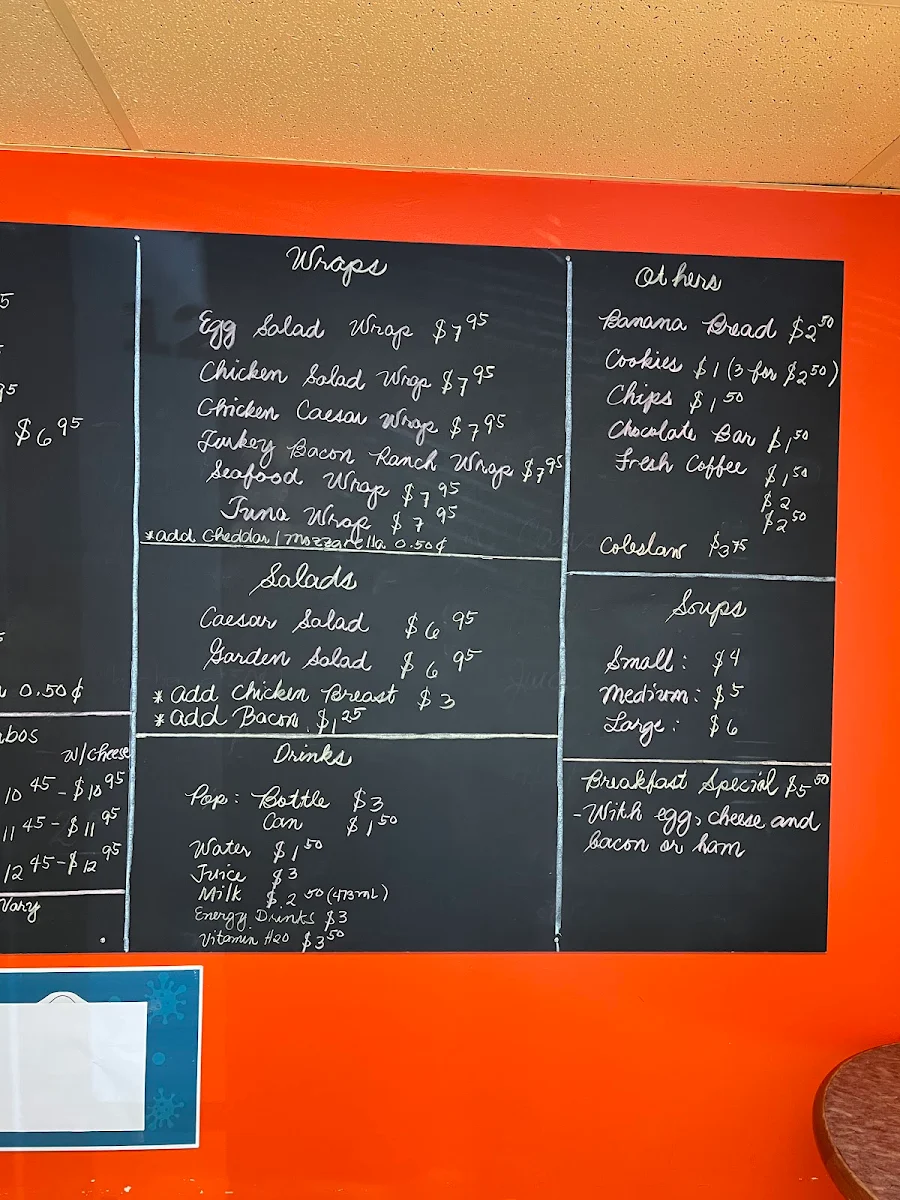 5
95
$6 95
0.50¢
w/cheese
10 45 - $10 95
11 45 - $11 95
12 45 - $12 95
Vary
Wraps
Egg Salad Wrap $7 95
Chicken Salad Wrap $7 95
Chicken Caesar Wrap $7 95
Turkey Bacon Ranch Wrap $7 95
Seafood Wrap $7 95
Tuna Wrap $7 95
*add Cheddar/Mozzarella 0.50¢
Salads
Caesar Salad $6 95
Garden Salad $6 95
* add Chicken Breast $3
* add Bacon $1 25
Drinks
Pop: Bottle $3
Can $1 50
Water $1 50
Juice $3
Milk $2 50 (473mL)
Energy Drinks $3
Vitamin H2O $3 50
Others
Banana Bread $2 50
Cookies $1 (3 for $2 50)
Chips $1 50
Chocolate Bar $1 50
Fresh Coffee $1 50
$2
$2 50
Coleslaw $3 75
Soups
Small: $4
Medium: $5
Large: $6
Breakfast Special $5 50
- With egg, cheese and
bacon or ham